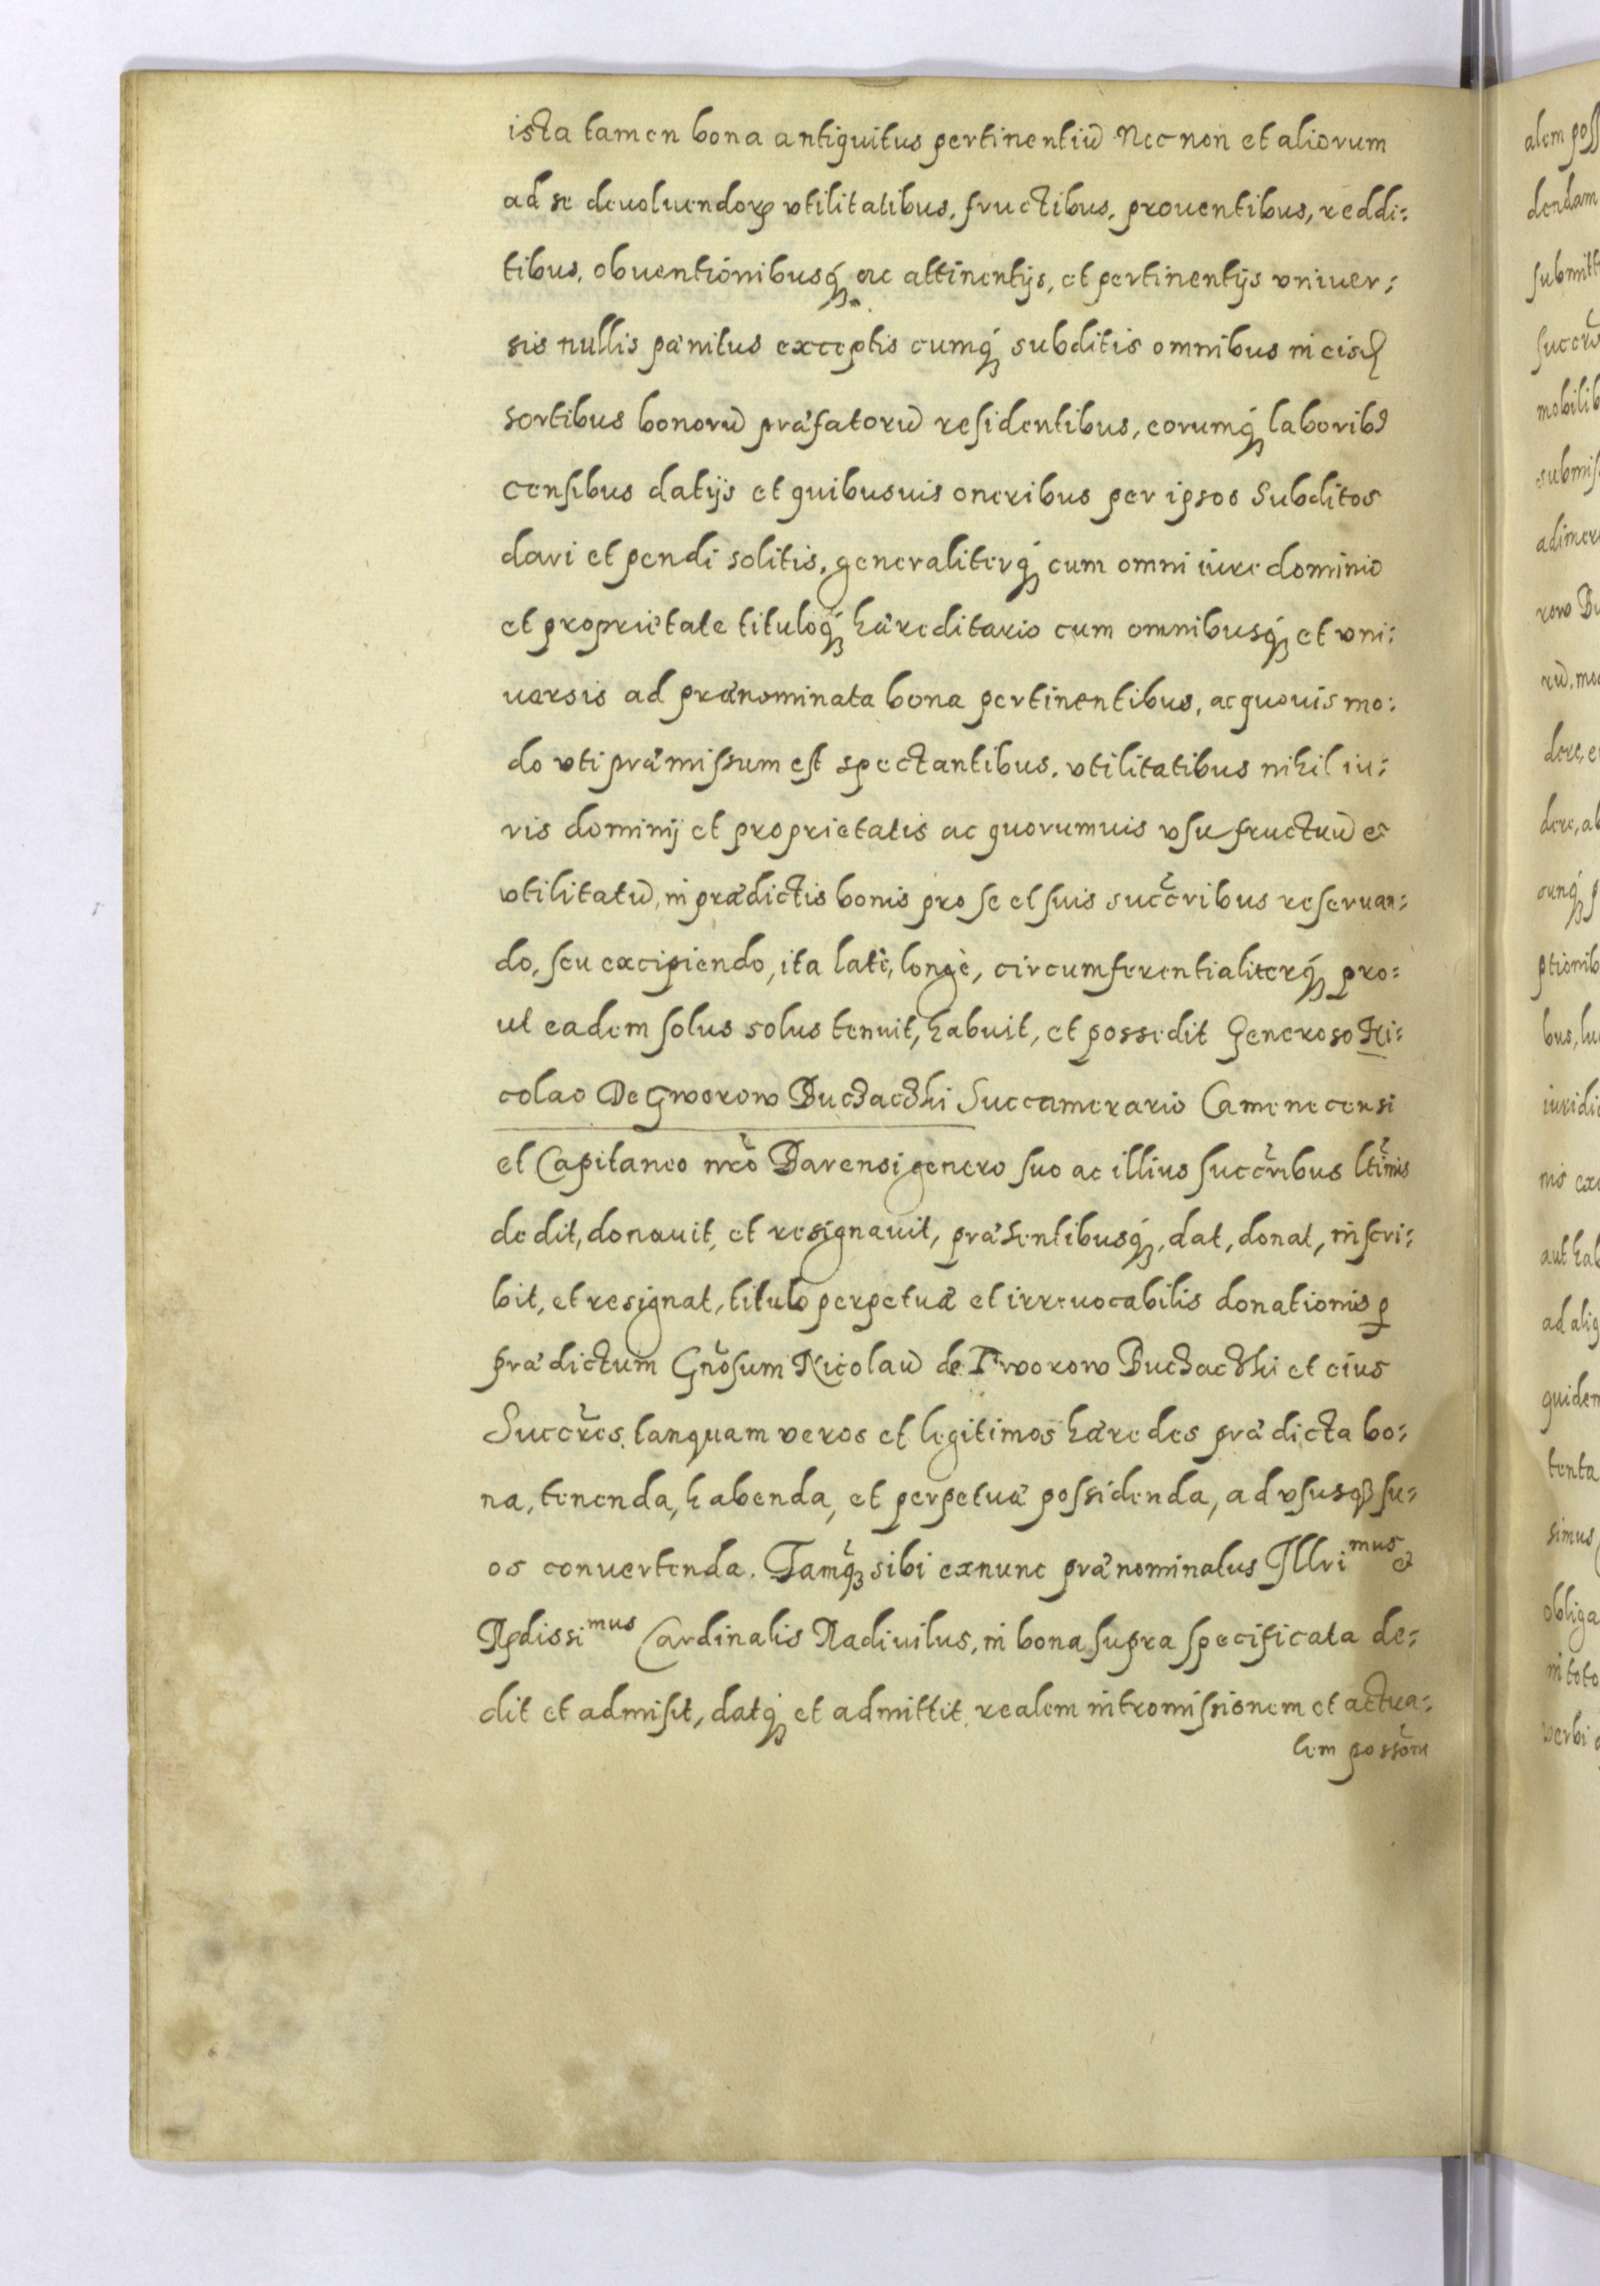 ista tamen bona antiquitus pertinentiũ Nec non et aliorum
ad se deuoluendorꝝ vtilitatibus, fructibus, prouentibus, reddi:
tibus, obuentionibusq́ ac attinentijs, et pertinentijs vniuer:
sis nullis pænitus exceptis cumq́ subditis omnibus in eisd
sortibus bonorũ præfatorũ residentibus, eorumq́ laboribꝰ
censibus datijs et quibusuis oneribus per ipsos Subditos
dari et pendi solitis, generaliterq́ cum omni iure dominio
et proprietate tituloq́ hæreditario cum omnibusq́ et vni:
uersis ad prænominata bona pertinentibus, ac quouis mo:
do vti præmissum est spectantibus, vtilitatibus nihil iu:
ris dominij et proprietatis ac quorumuis vsufructuũ et
vtilitatũ, in prædictis bonis pro se et suis succr̃ibus reseruan:
do, seu excipiendo, ita latè, longè, circumferentialiterq́ pro:
ut eadem solus solus tenuit, habuit, et possedit Generoso Ni:
colao De Gworow Buczaczki Succamerario Camenecensi
et Capitaneo nr̃o Barensi genero suo ac illius succr̃ibus ltĩmis
dedit, donauit, et resignauit, præsentibusq́, dat, donat, inscri:
bit, et resignat, titulo perpetuæ et irreuocabilis donationis ꝑ
prædictum Gnõsum Nicolaũ de Tworow Buczaczki et eius
Succr̃es, tanquam veros et legitimos hæredes prædicta bo:
na, tenenda, habenda, et perpetuæ possidenda, ad vsusqꝫ su:
os conuertenda. Tamqꝫ sibi exnunc prænominatus Illrimus et
Rndissimus Cardinalis Radiuilus, in bona supra specificata de:
dit et admisit, datq́ et admittit, realem intromissionem et actua:
lem possõm
alem poss
dendam
submitt
succr̃
mobilib
submis
adimer
row Bu
rũ, mo
dere, e
dere, ab
cunq́ p
ptionib
bus, lu
iuridi
nis exc
aut hab
ad aliq
quidem
tenta
simus
obliga
in toto
verbi